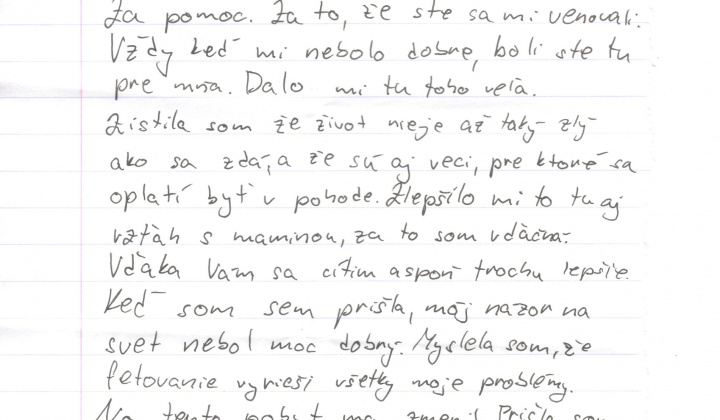 Za pomoc. Za to, že ste sa mi venovali.
Vždy keď mi nebolo dobre, boli ste tu
pre mňa. Dalo mi tu toho veľa.
Zistila som že život nieje až taký zlý
ako sa zdá, a že sú aj veci, pre ktoré sa
oplatí byť v pohode. Zlepšilo mi to tu aj
vzťah s maminou, za to som vďačná.
Vďaka Vam sa cítim aspoň trochu lepšie.
Keď som sem prišla, môj nazor na
svet nebol moc dobrý. Myslela som, že
fetovanie vyrieši všetky moje problémy.
Na tento pobyt ma zmenil Prišla som